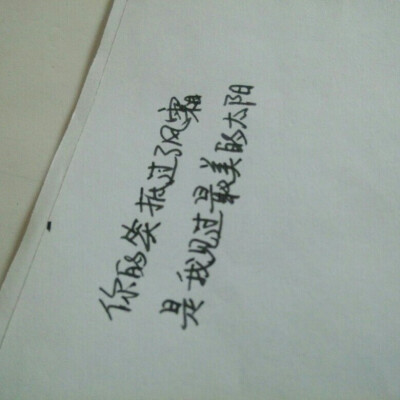 你的笑抵过了风霜
是我见过最美的太阳